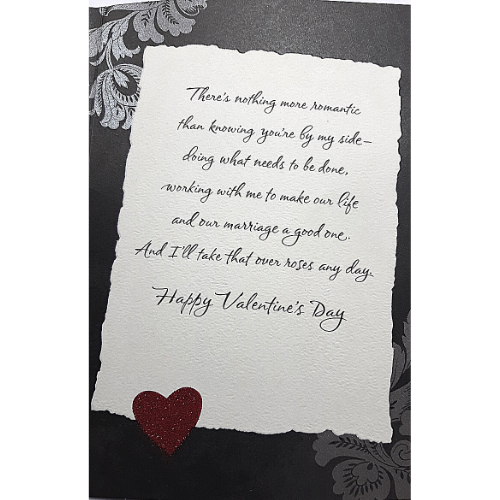 There's nothing more romantic
than knowing you're by my side—
doing what needs to be done,
working with me to make our life
and our marriage a good one.
And I'll take that over roses any day.
Happy Valentine's Day